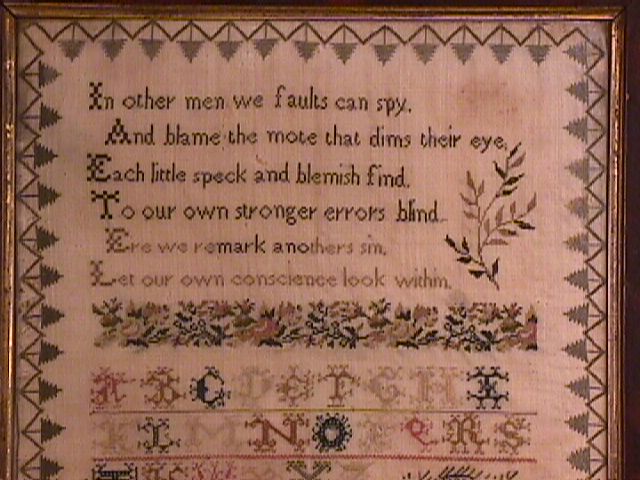 In other men we faults can spy,
And blame the mote that dims their eye,
Each little speck and blemish find,
To our own stronger errors blind.
Ere we remark anothers sin,
Let our own conscience look within.
A B C D E F G H I
K L M N O P Q R S